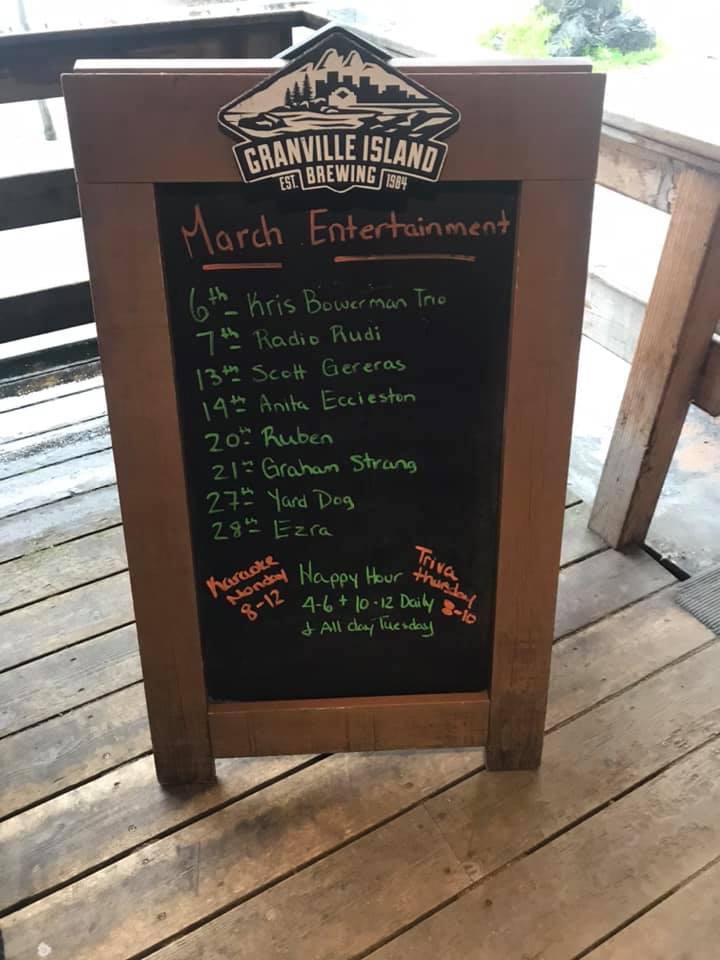 GRANVILLE ISLAND
EST. BREWING 1984
March Entertainment
6th - Kris Bowerman Trio
7th - Radio Rudi
13th - Scott Gereras
14th - Anita Eccleston
20th - Ruben
21st - Graham Strang
27th - Yard Dog
28th - Ezra
Karaoke
Monday
8-12
Happy Hour
4-6 + 10-12 Daily
+ All day Tuesday
Triva
thursday
8-10